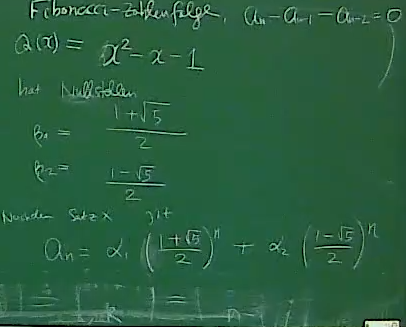 Fibonacci-Zahlenfolge, aₙ - aₙ₋₁ - aₙ₋₂ = 0
Q(x) = x² - x - 1
hat Nullstellen
β₁ = (1+√5)/2
β₂ = (1-√5)/2
Nach dem Satz x gilt
aₙ = α₁ ((1+√5)/2)ⁿ + α₂ ((1-√5)/2)ⁿ